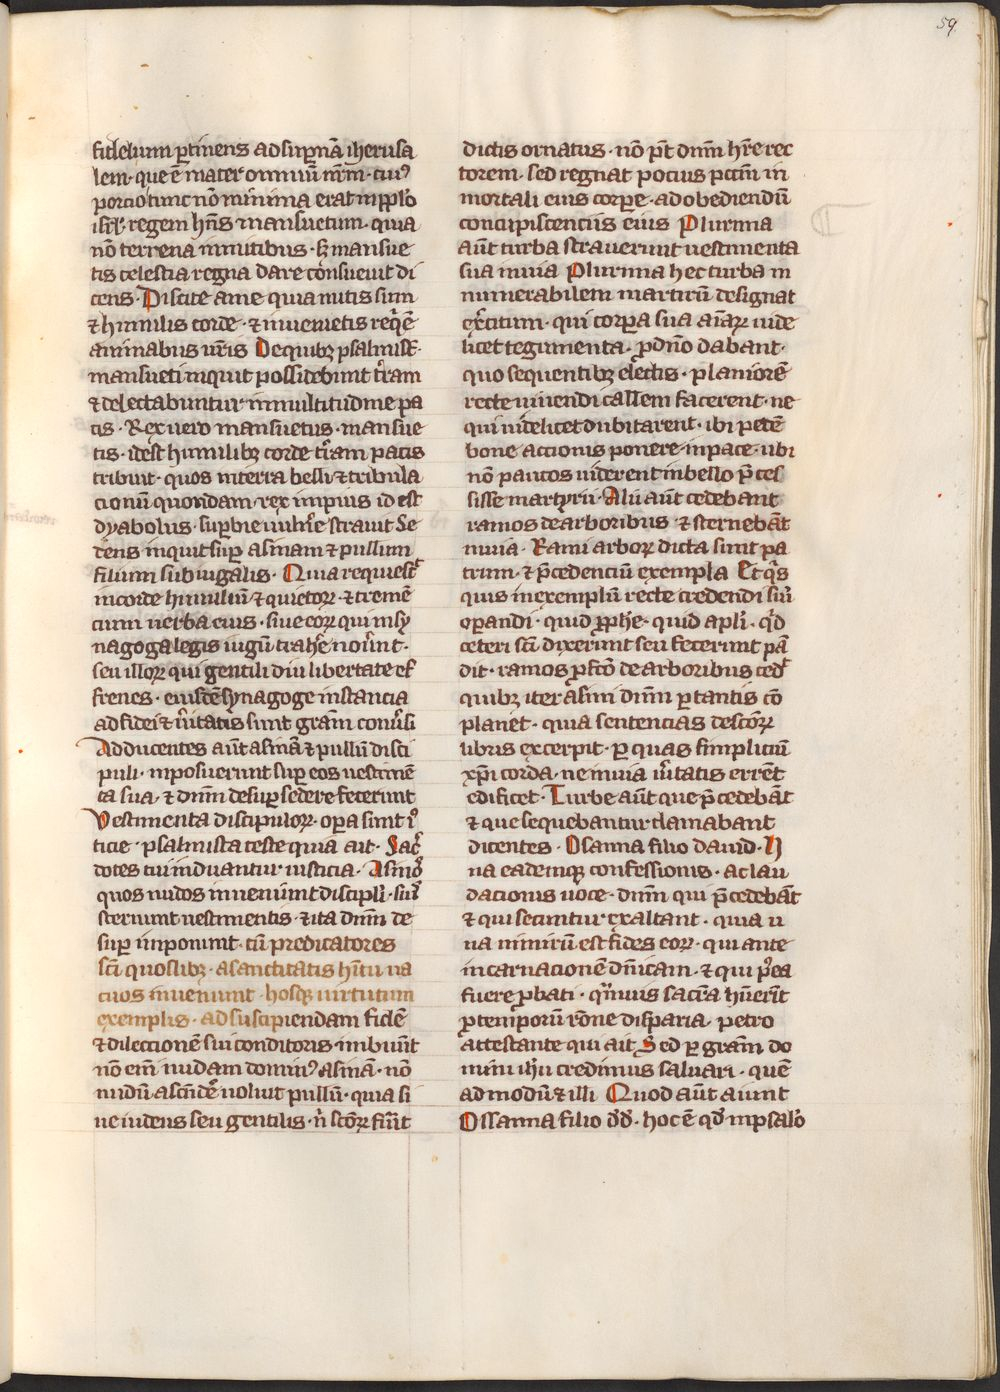 59
fidelium p̄tinens ad sup̄nā iherusa
lem · que ē mater omniū nr̄m · cuiꝰ
porcio tunc nō minima erat in ꝓpl̓o
isrl̓ · regem hn̄s mansuetum · quia
nō terrena inmitibus · sꝫ mansue
tis celestia regna dare consueuit di
cens · Discite ame quia mitis sum
⁊ humilis corde · ⁊ inuenietis req̄ē
animabus ur̄is De quibꝫ psalmist̓
mansueti inquit possidebunt t̓ram
⁊ delectabuntur in multitudine pa
cis · Rex uero mansuetus · mansue
tis · idest humilibꝫ corde t̓ram pacis
tribuit · quos in terra belli ⁊ tribula
cionū quondam · rex impius id est
dyabolus · superbie uuln̓e strauit Se
dens inquit sup̄ asinam ⁊ pullum
filium subiugalis · Quia requiesc̓
in corde humiliū ⁊ quietoꝝ · ⁊ tremē
cium uerba eius · siue eoꝝ qui in sy
nagoga legis iugū trah̓e nou̓int ·
seu illoꝝ qui gentili diu libertate ef
frenes · eiusdē synagoge instancia
ad fidei ⁊ u̓itatis sunt grām conu̓si
Adducentes aūt asinā ⁊ pullū disci
puli · inposuerunt sup̄ eos uestimē
ta sua · ⁊ dn̄m desup̄ sedere fecerunt
Vestimenta discipuloꝝ · opera sunt iꝰ
ticie · psalmista teste quia ait · Sac̓
dotes tui induantur iusticia · Asinoꝰ
quos nudos inuenerunt discipli̓ · suiꝰ
sternunt uestimentis · ⁊ ita dn̄m de
sup̄ imponunt · cū predicatores
scī quoslibꝫ · a sanctitatis hītu ua
cuos inueniunt · hosqꝫ uirtutum
exemplis · ad suscipiendam fidē
⁊ dileccionē sui conditoris inbuūt
nō eni̅ nudam dominꝰ asinā · nō
nudū ascēdē̓ uoluit pullū · quia si
ue iudeus seu gentilis · n̓ scōꝝ fu̓it
dictis ornatus · nō pōt dn̄m hr̄e rec
torem · sed regnat pocius pc̄cm in
mortali eius corpore · ad obediendū
concupiscenciis eius Plurima
aūt turba strauerunt uestimenta
sua in uia Plurima hec turba in
numerabilem martirū designat
ex̓citum · qui corp̄a sua aīaꝝ uide
licet tegumenta · p̄ dn̄o dabant ·
quo sequentibꝫ electis · planiorē
recte uiuendi callem facerent · ne
qui uidelicet dubitarent · ibi pedē
bone accionis ponere in pace · ubi
nō paucos uiderent in bello p̄ces
sisse martyrii · Alii aūt cedebant
ramos de arboribus · ⁊ sternebāt
in uia · Rami arboꝝ dicta sunt pa
trum · ⁊ p̄cedenciū exempla Et qͥs
quis in exemplū recte credendi siuͥ
operandi · quid ꝓphe · quid apli̓ · qͥd
ceteri scī dixerunt seu fecerunt pā
dit · ramos ꝓfc̄o de arboribus cedͥ
quibꝫ iter asini dn̄m portantis cō
planet · quia sentencias de scōꝝ
libris excerpit · per quas simpliciū
xp̄i corda · ne in uia u̓itatis errēt
edificet · Turbe aūt que p̄cedebāt
⁊ que sequebantur clamabant
dicentes · Osanna filio dauid · U
na eademqꝫ confessionis · ac lau
dacionis uoce · dn̄m qui p̄cedebāt
⁊ qui secuntur exaltant · quia u
na nimirū est fides eoꝝ · qui ante
incarnacionē dn̄icam · ⁊ qui p̓ea
fuere ꝓbati · qͣmuis sacr̄a hu̓erīt
ꝓ temporum rōne disparia · petro
attestante qui ait Sed ꝑ grām do
mini ih̓u credimus saluari · quē
ad modū ⁊ illi Quod aūt aiunt
Ossanna filio dd̓ · hoc ē qd̓ in psal̓o